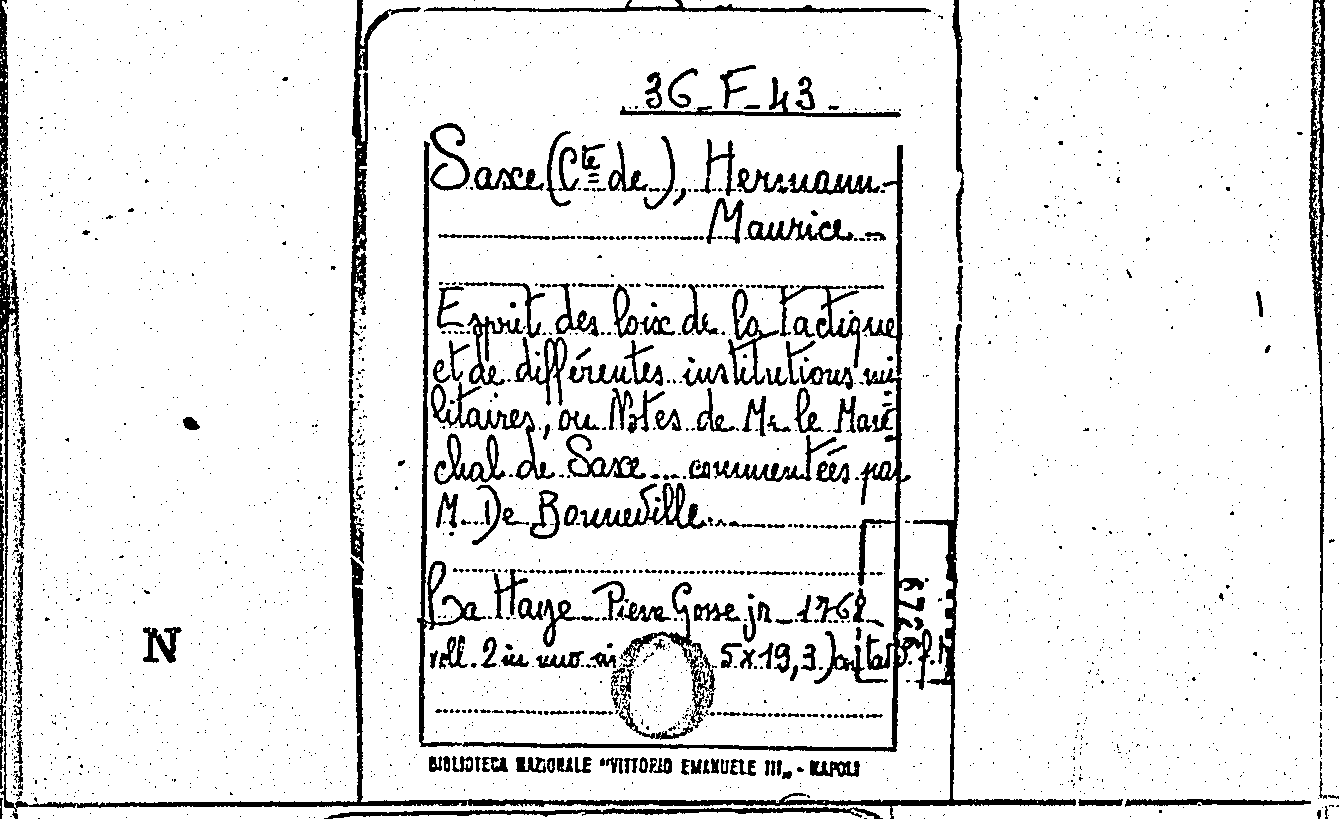 36_F_43_
Saxe (Cte de), Hermann-
Maurice_
Esprit des loix de la tactique
et de différentes institutions mi
litaires, ou Notes de Mr le Maré
chal de Saxe... commentées par
M. De Bonneville...
N
La Haye Pierre Gosse jr_ 1762
voll. 2 in uno in 5x19,3) antap. p. N
BIBLIOTECA NAZIONALE "VITTORIO EMANUELE III„ - NAPOLI